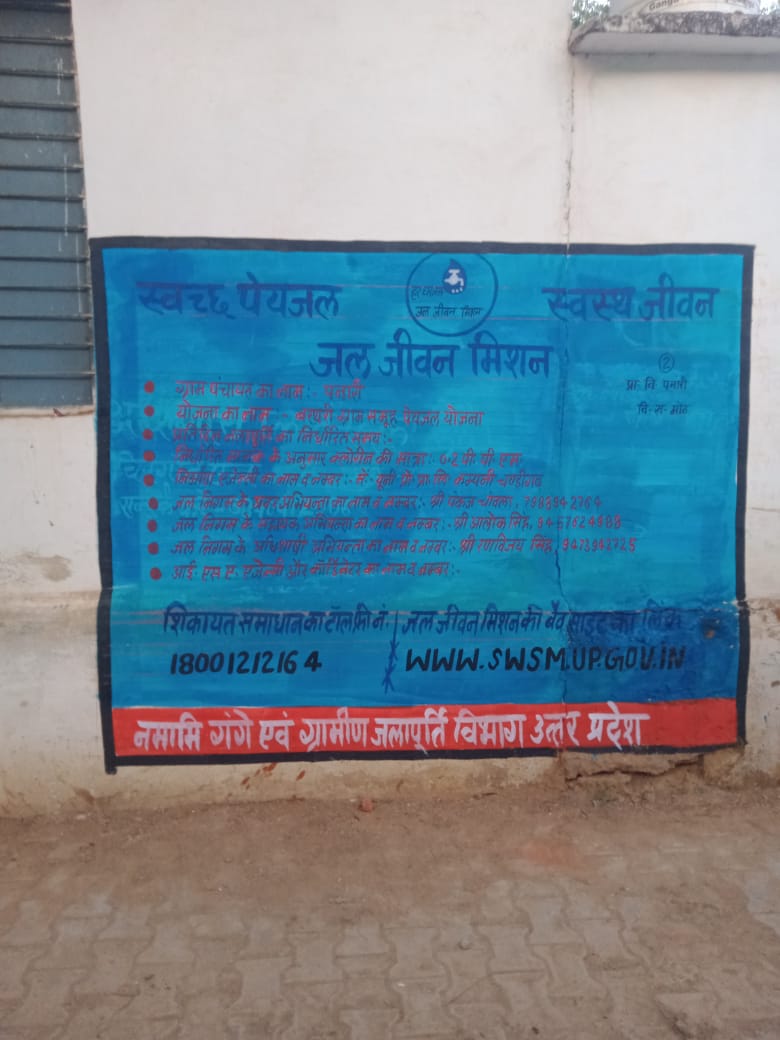 स्वच्छ पेयजल
हर घर जल
जल जीवन मिशन
स्वस्थ जीवन
जल जीवन मिशन
②
प्रा॰ वि॰ पनारी
वि॰ स॰ मोंठ
ग्राम पंचायत का नाम :- पनारी
योजना का नाम :- ग्राम समूह पेयजल योजना
का निर्धारित समय :-
निर्धारित मानक के अनुसार क्लोरीन की मात्रा : 0.2 पी॰ पी॰ एम॰
निर्माण एजेन्सी का नाम व नम्बर :- मै॰ प्रा॰ लि॰ कम्पनी चण्डीगढ़
जल निगम के अवर अभियन्ता का नाम व नम्बर :- श्री पंकज चावला, 7988942764
जल निगम के सहायक अभियन्ता का नाम व नम्बर :- श्री आलोक सिंह,
जल निगम के अधिशाषी अभियन्ता का नाम व नम्बर :- श्री रणविजय सिंह, 9473942725
आई॰ एस॰ ए॰ एजेन्सी और कॉर्डिनेटर का नाम व नम्बर :-
शिकायत समाधान का टॉल फ्री नं॰
18001212164
जल जीवन मिशन की वैव साइट का लिंक
WWW.SWSM.UP.GOV.IN
नमामि गंगे एवं ग्रामीण जलापूर्ति विभाग उत्तर प्रदेश